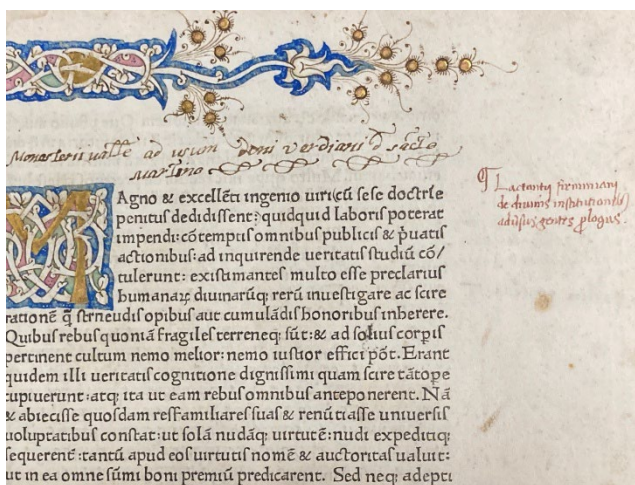 Monasterii vallẽ ad usum doni Verdiani d̃ sancto
Martino
¶ Lactantij firmiani
de diuinis institutionib₉
aduersus gentes ꝓlogus.
MAgno & excellẽti ingenio uiri cũ sese doctrie
penitus dedidissent: quidquid laboris poterat
impendi: cõtemptis omnibus publicis & p̃uatis
actionibus: ad inquirende ueritatis studiũ cõ/
tulerunt: existimantes multo esse preclarius
humanaꝝ diuinarũq; rerũ inuestigare ac scire
rationẽ q̃ struẽdis opibus aut cumulãdis honoribus inherere.
Quibus rebus quoniã fragiles terreneq; sũt: & ad solius corp̲is
pertinent cultum nemo melior: nemo iustior effici põt. Erant
quidem illi ueritatis cognitione dignissimi quam scire tãtop̲e
cupiuerunt: atq; ita ut eam rebus omnibus anteponerent. Nã
& abiecisse quosdam res familiares suas & renũtiasse uniuersis
uoluptatibus constat: ut solã nudãq; uirtutẽ: nudi expeditiq;
sequerent̃: tantũ apud eos uirtutis nomẽ & auctoritas ualuit:
ut in ea omne sũmi boni premiũ predicarent. Sed neq; adepti